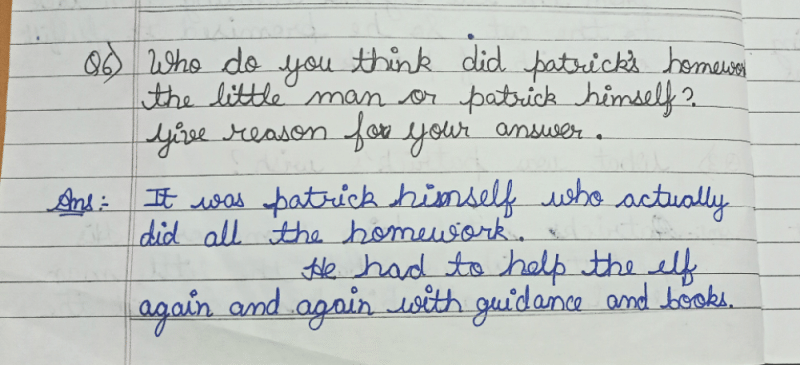 Q6) Who do you think did patrick's homewor
the little man or patrick himself?
Give reason for your answer.
Ans:- It was patrick himself who actually
did all the homework.
He had to help the elf
again and again with guidance and books.